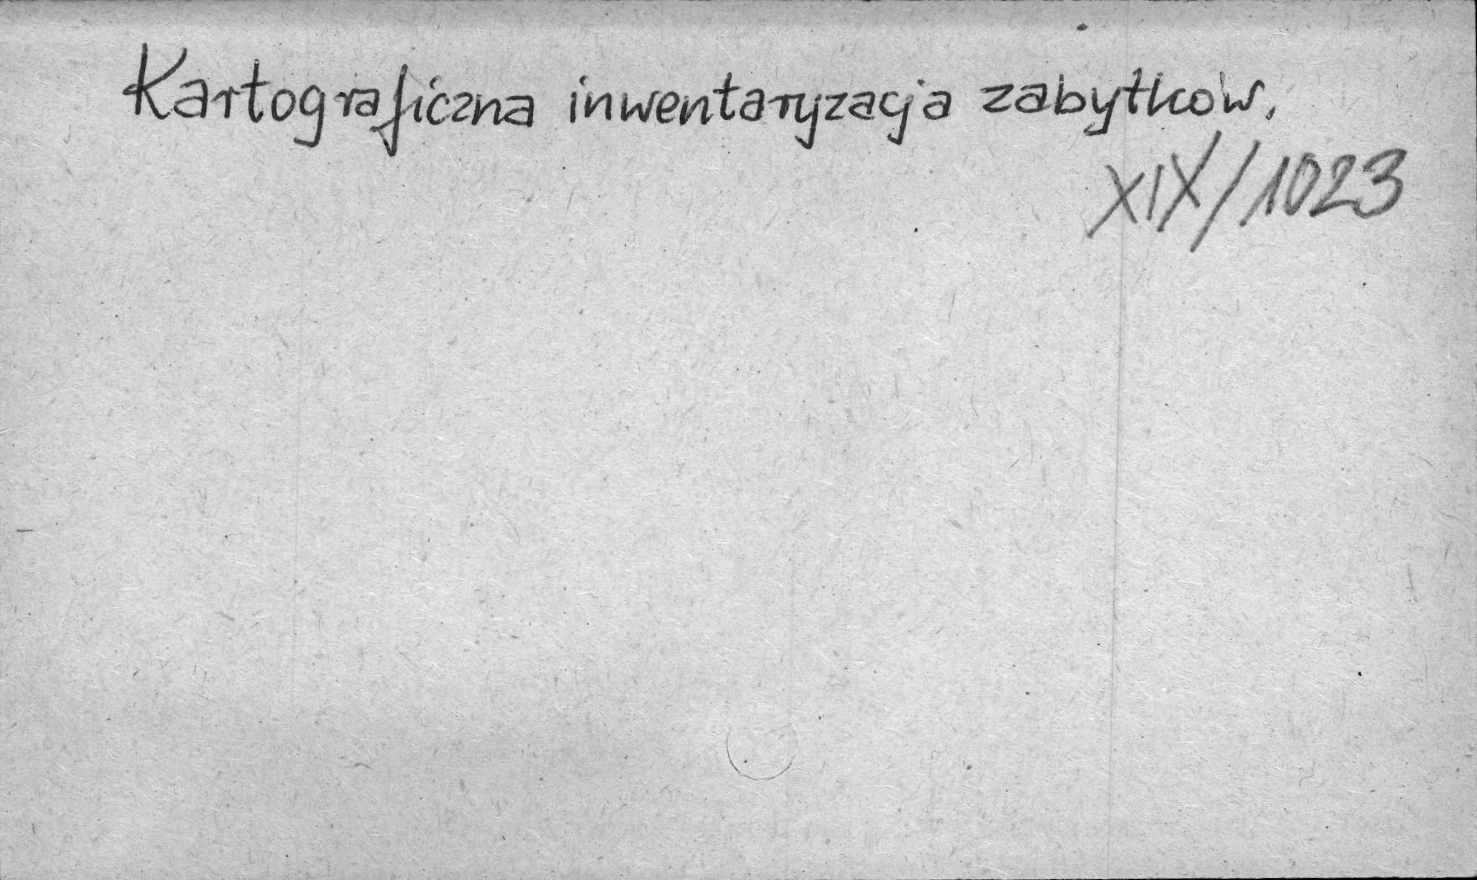 Kartograficzna inwentaryzacja zabytków.
XIX/1023